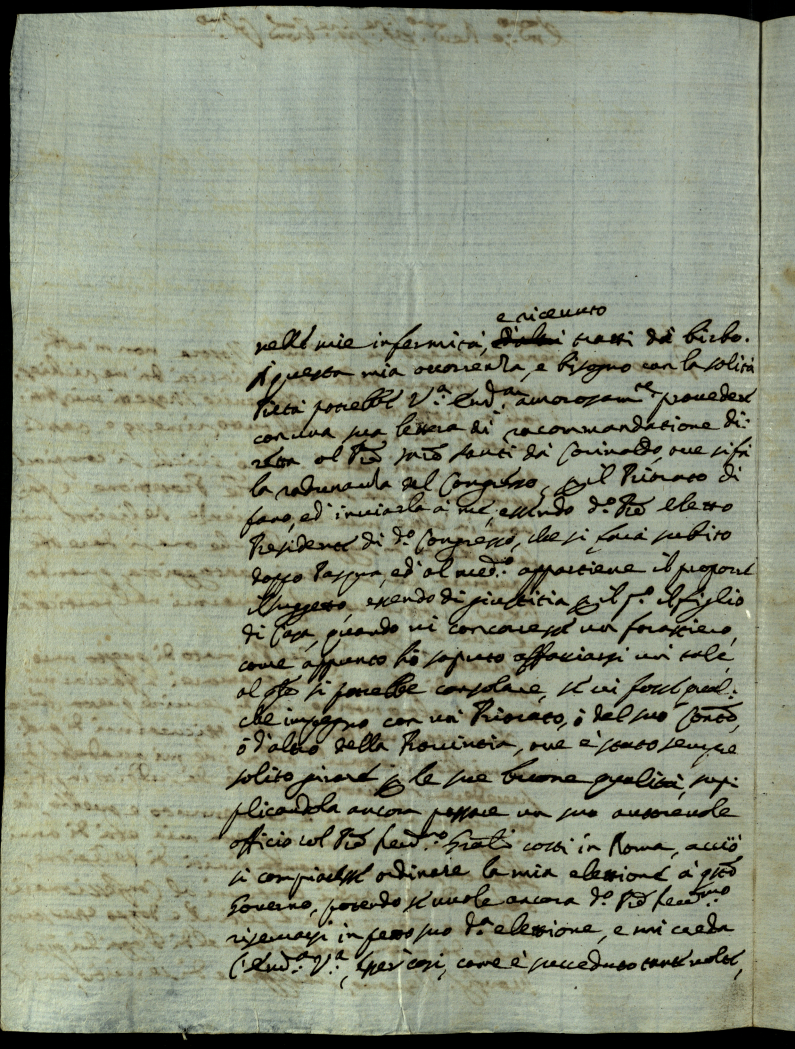 e riceuuto
nelle mie infermità, tratti da birbo.
A questa mia occorrenza, e bisogno con la solita
Pietà potrebbe V.ª Em.ª amorosam.te prouedere
con una sua lettera di raccomandatione di-
retta al Prē Mrō Santi da Corinaldo, oue si fà
la radunanza del Congresso, p il Priorato di
fano, ed' inuiarla à me, essendo d.º Prē eletto
Presidente di d.º Congresso, che si farà subito
doppo Pasqua, ed' al med.º appartiene il proporre
il suggetto, essendo di giustitia p il p.º il figlio
di Casa, quando ui concoresse un forastiero,
come appunto hò saputo affaciarsi un tale,
al qle si potrebbe consolare, se ui fosse qual-
che impegno con un Priorato, ò del suo Contō,
ò d'altro della Prouintia, oue è stato sempre
solito girare p le sue buone qualità, sup-
plicandola ancora passare un suo autoreuole
officio col Prē Reud.mo Grālē costì in Roma, acciò
si compiacesse ordinare la mia elettione à qstō
Gouerno, potendo se uuole ancora d.º Prē Reud.mo
riseruarsi in petto suo d.ª elettione, e mi creda
l'Em.ª V.ª, esser così, come è succeduto tante uolte,